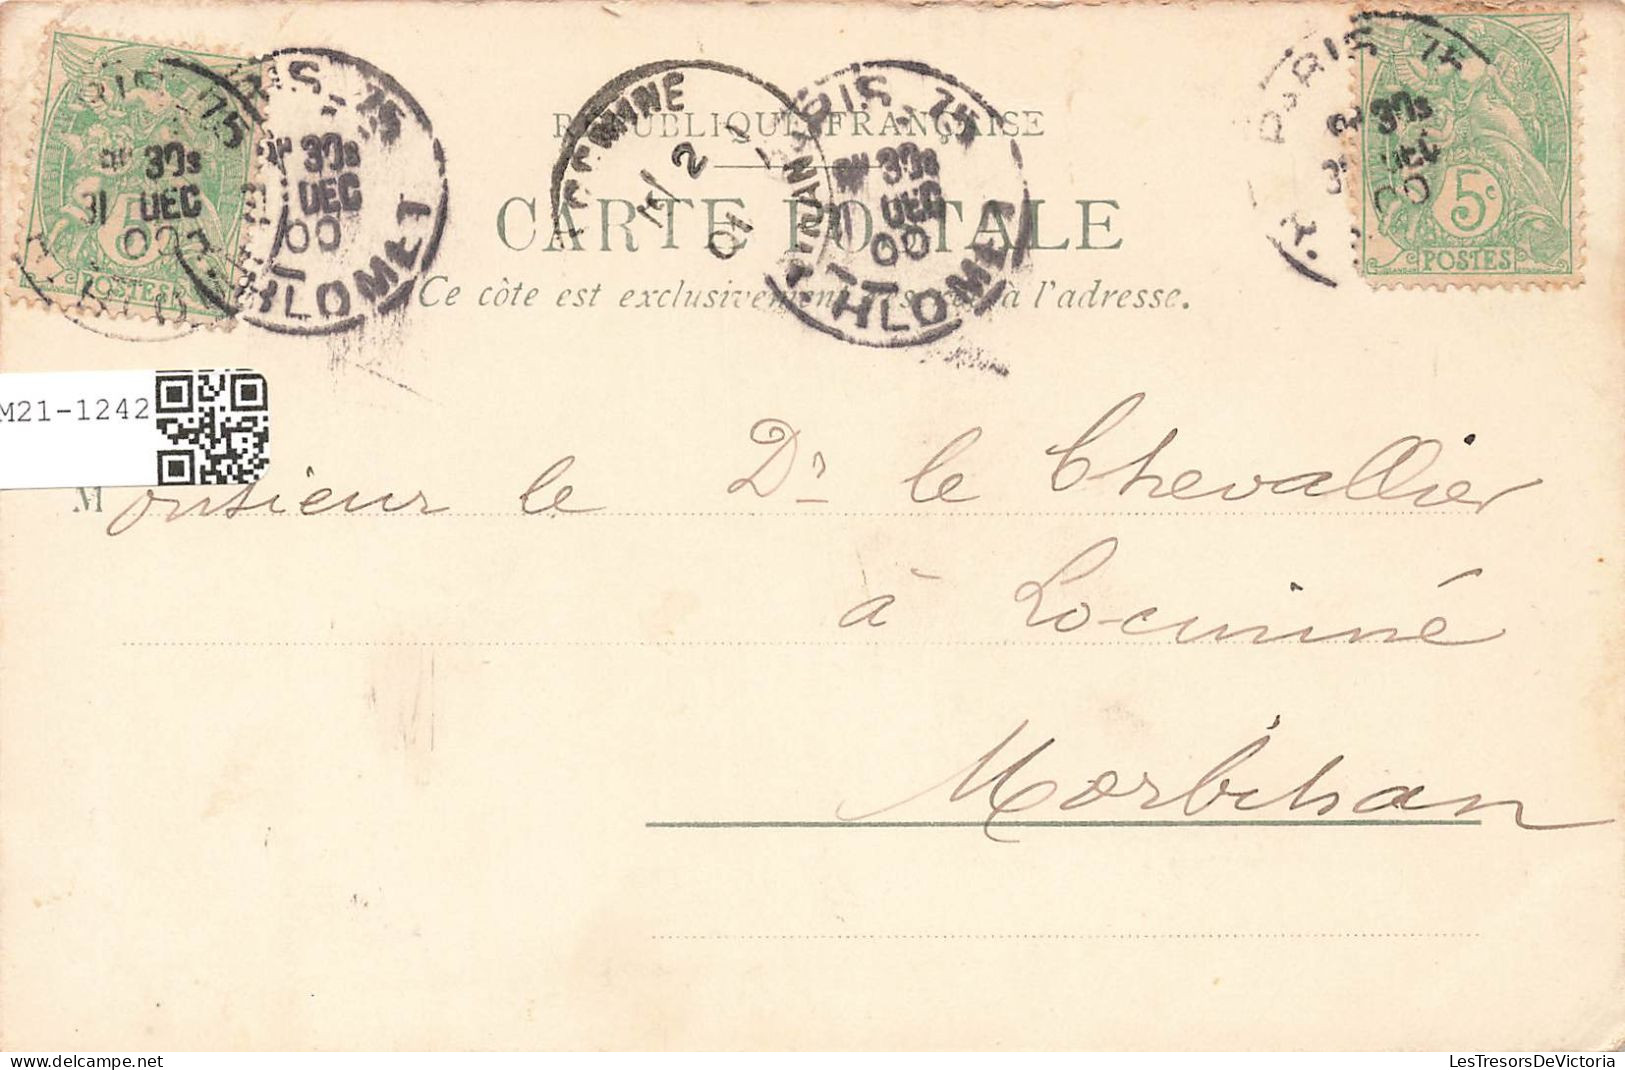 RÉPUBLIQUE FRANÇAISE
CARTE POSTALE
Ce côte est exclusivement à l'adresse.
PARIS - 75
30s
31 DEC
00
R. HLOMET
PARIS - 75
30s
DEC
00
HLOMET
2
01
PARIS - 75
30s
31 DEC
00
HLOMET
PARIS 75
30s
31 DEC
00
R.
5c
POSTES
5
POSTES
M21-1242
Monsieur le Dr le Chevallier
à Locminé
Morbihan
LesTresorsDeVictoria